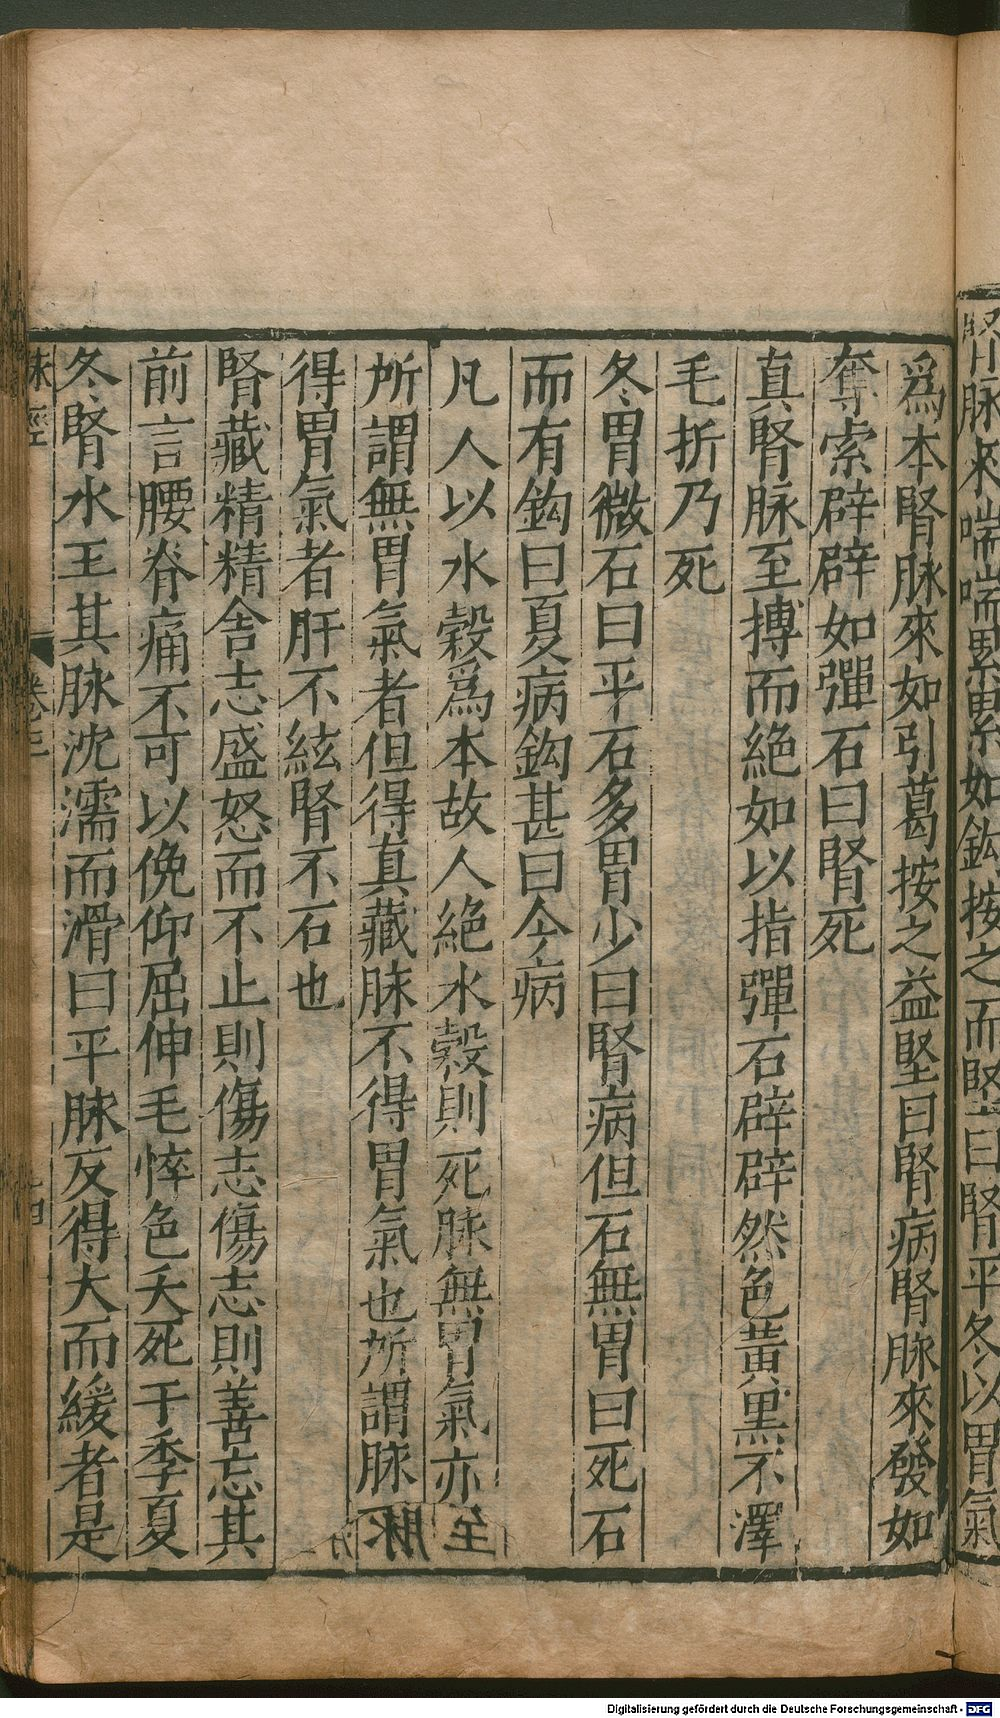 腎脉來喘喘累累如鈎按之而堅曰腎平冬以胃氣
爲本腎脉來如引葛按之益堅曰腎病腎脉來發如
奪索辟辟如彈石曰腎死
真腎脉至摶而絶如以指彈石辟辟然色黃黒不澤
毛折乃死
冬胃微石曰平石多胃少曰腎病但石無胃曰死石
而有鈎曰夏病鈎甚曰今病
凡人以水穀爲本故人絶水穀則死脉無胃氣亦
所謂無胃氣者但得真藏脉不得胃氣也所謂脉
得胃氣者肝不絃腎不石也
腎藏精精舎志盛怒而不止則傷志傷志則善忘其
前言腰脊痛不可以俛仰屈伸毛悴色夭死于季夏
冬腎水王其脉沈濡而滑曰平脉反得大而緩者是
脉經
卷三
Digitalisierung gefördert durch die Deutsche Forschungsgemeinschaft - DFG